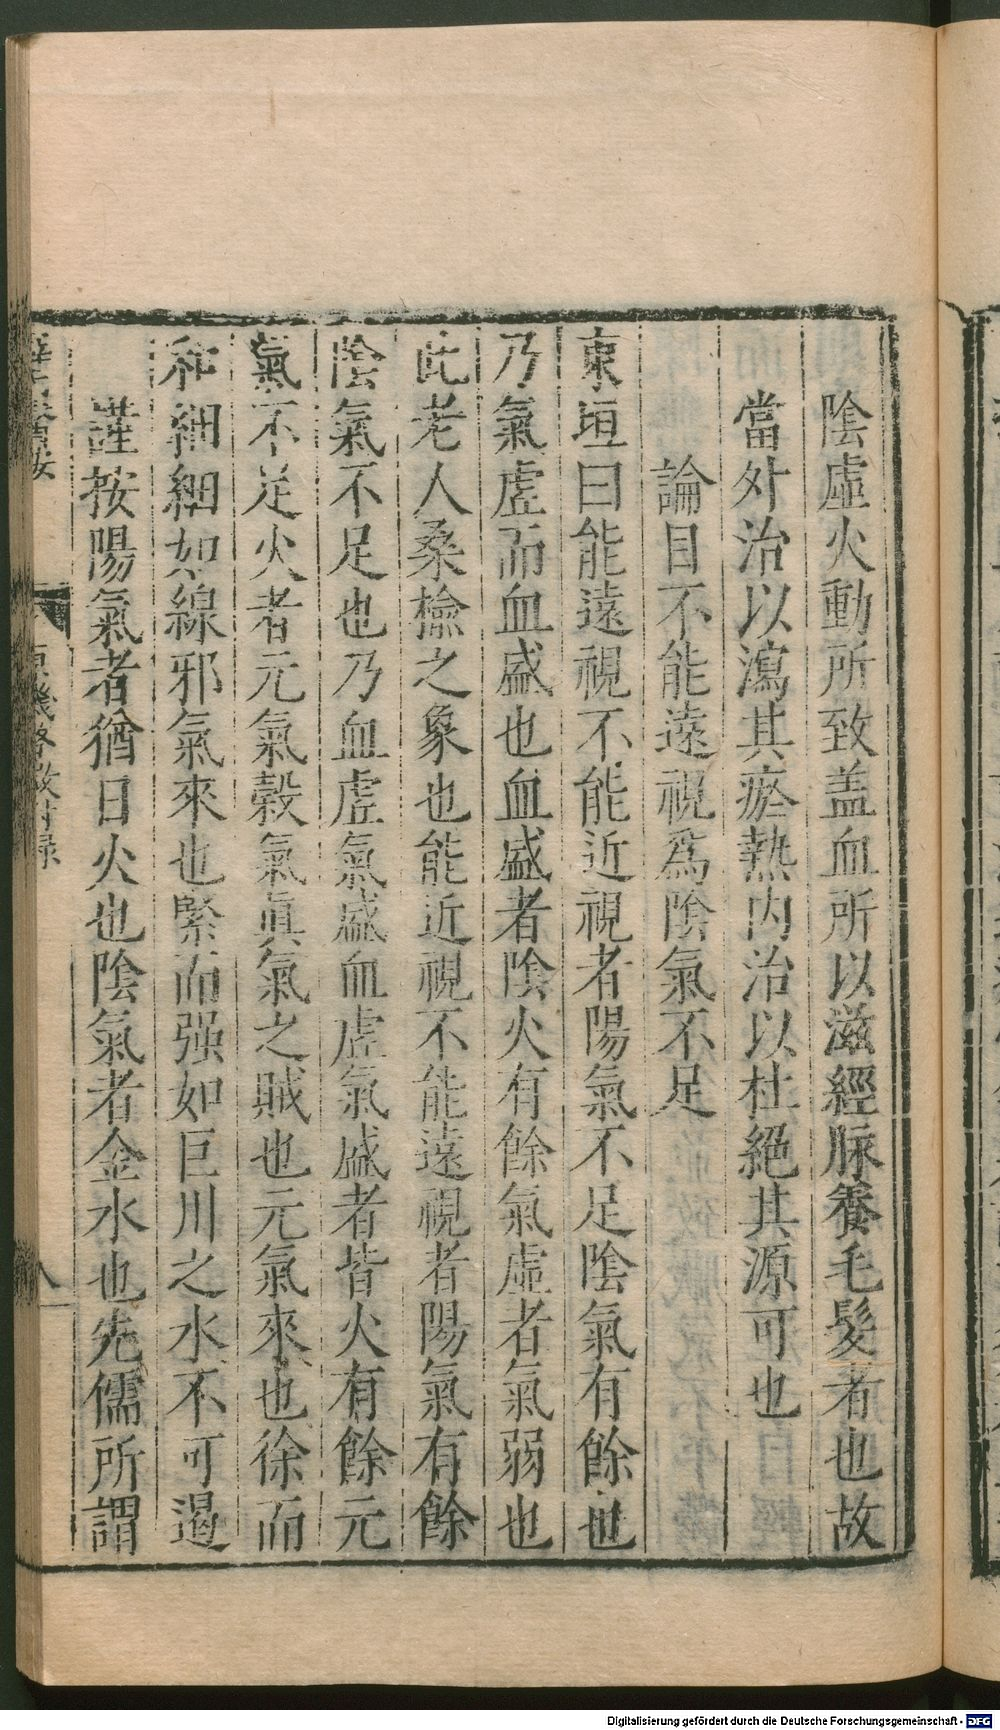 陰虛火動所致盖血所以滋經脉養毛髮者也故
當外治以瀉其瘀熱内治以杜絕其源可也
論目不能遠視爲陰氣不足
東垣曰能遠視不能近視者陽氣不足陰氣有餘也
乃氣虛而血盛也血盛者陰火有餘氣虛者氣弱也
此老人桑榆之象也能近視不能遠視者陽氣有餘
陰氣不足也乃血虛氣盛血虛氣盛者皆火有餘元
氣不足火者元氣穀氣眞氣之賊也元氣來也徐而
和細細如線邪氣來也緊而强如巨川之水不可遏
謹按陽氣者猶日火也陰氣者金水也先儒所謂
八
Digitalisierung gefördert durch die Deutsche Forschungsgemeinschaft - DFG